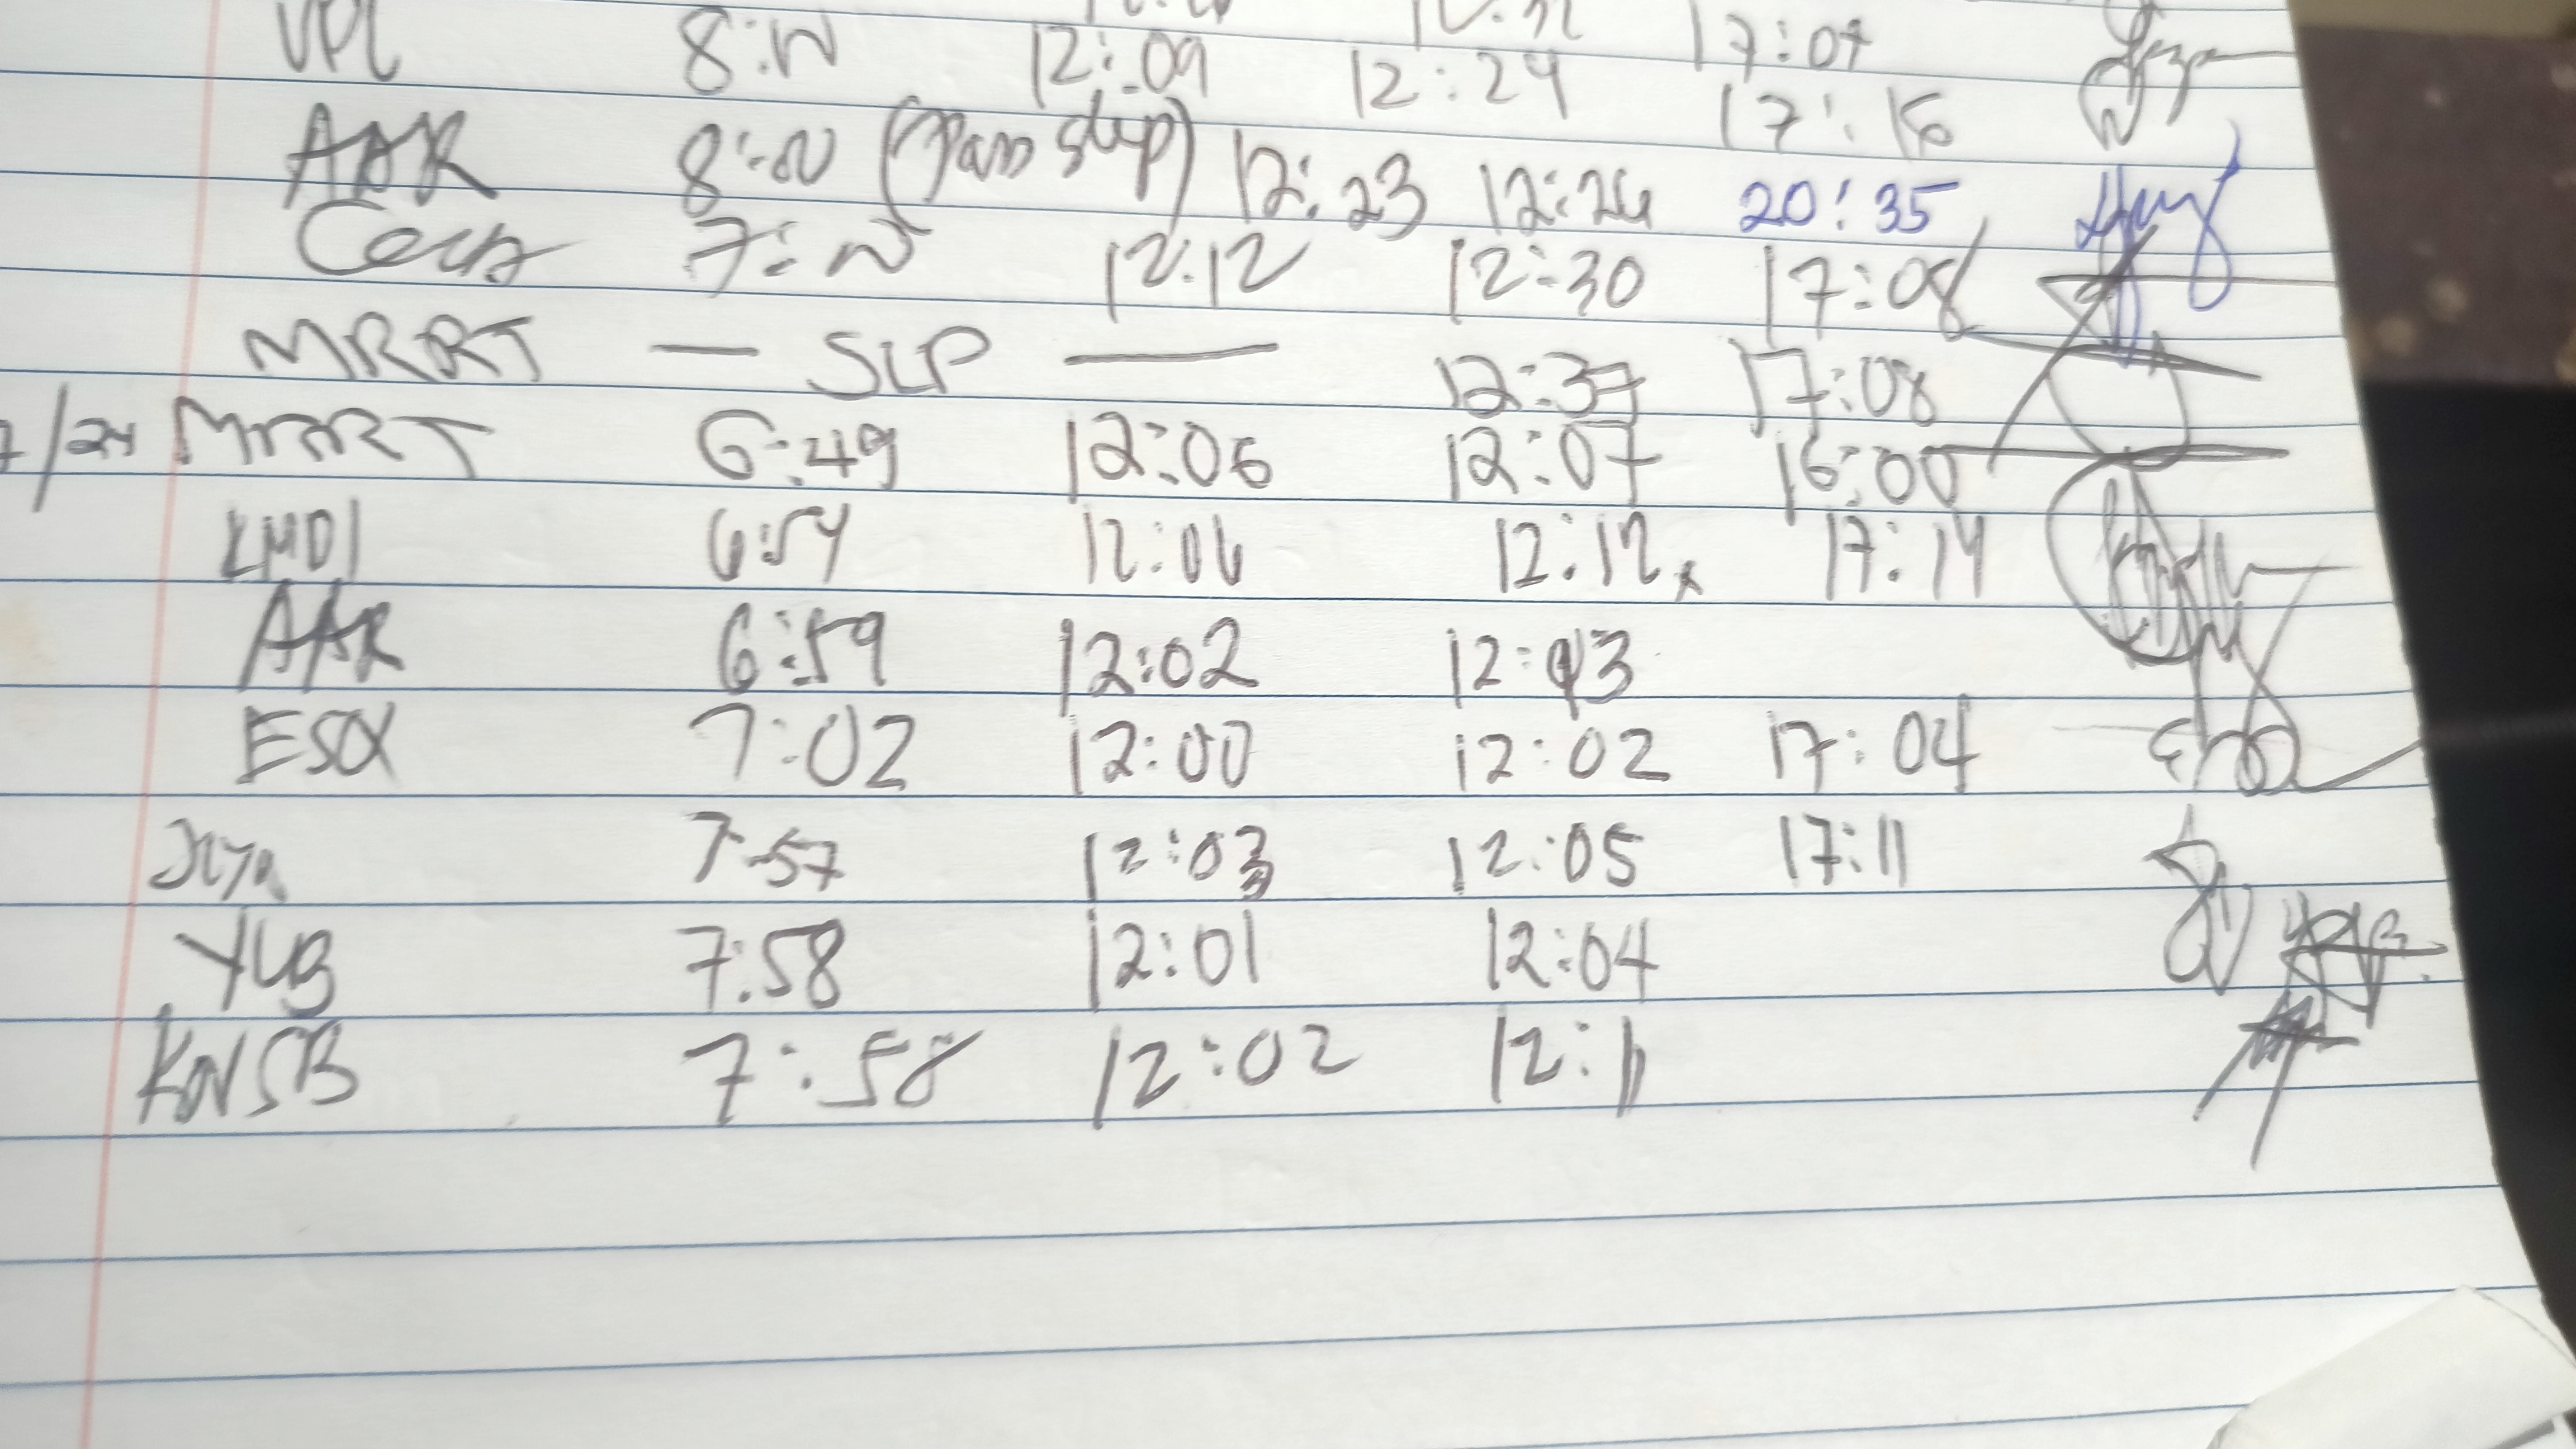 VPL 12:09 12:24 17:04
AAR (pass slip) 12:23 12:24 20:35 17:16
12:12 12:30 17:08
MRRT — SLP — 12:37 17:08
/24 MRRT 6:49 12:06 12:07 16:00
LMDI 6:54 12:06 12:12 17:14
AAR 6:59 12:02 12:03
ESQ 7:02 12:00 12:02 17:04
7:57 12:03 12:05 17:11
YLB 7:58 12:01 12:04
KNSB 7:58 12:02 12:11